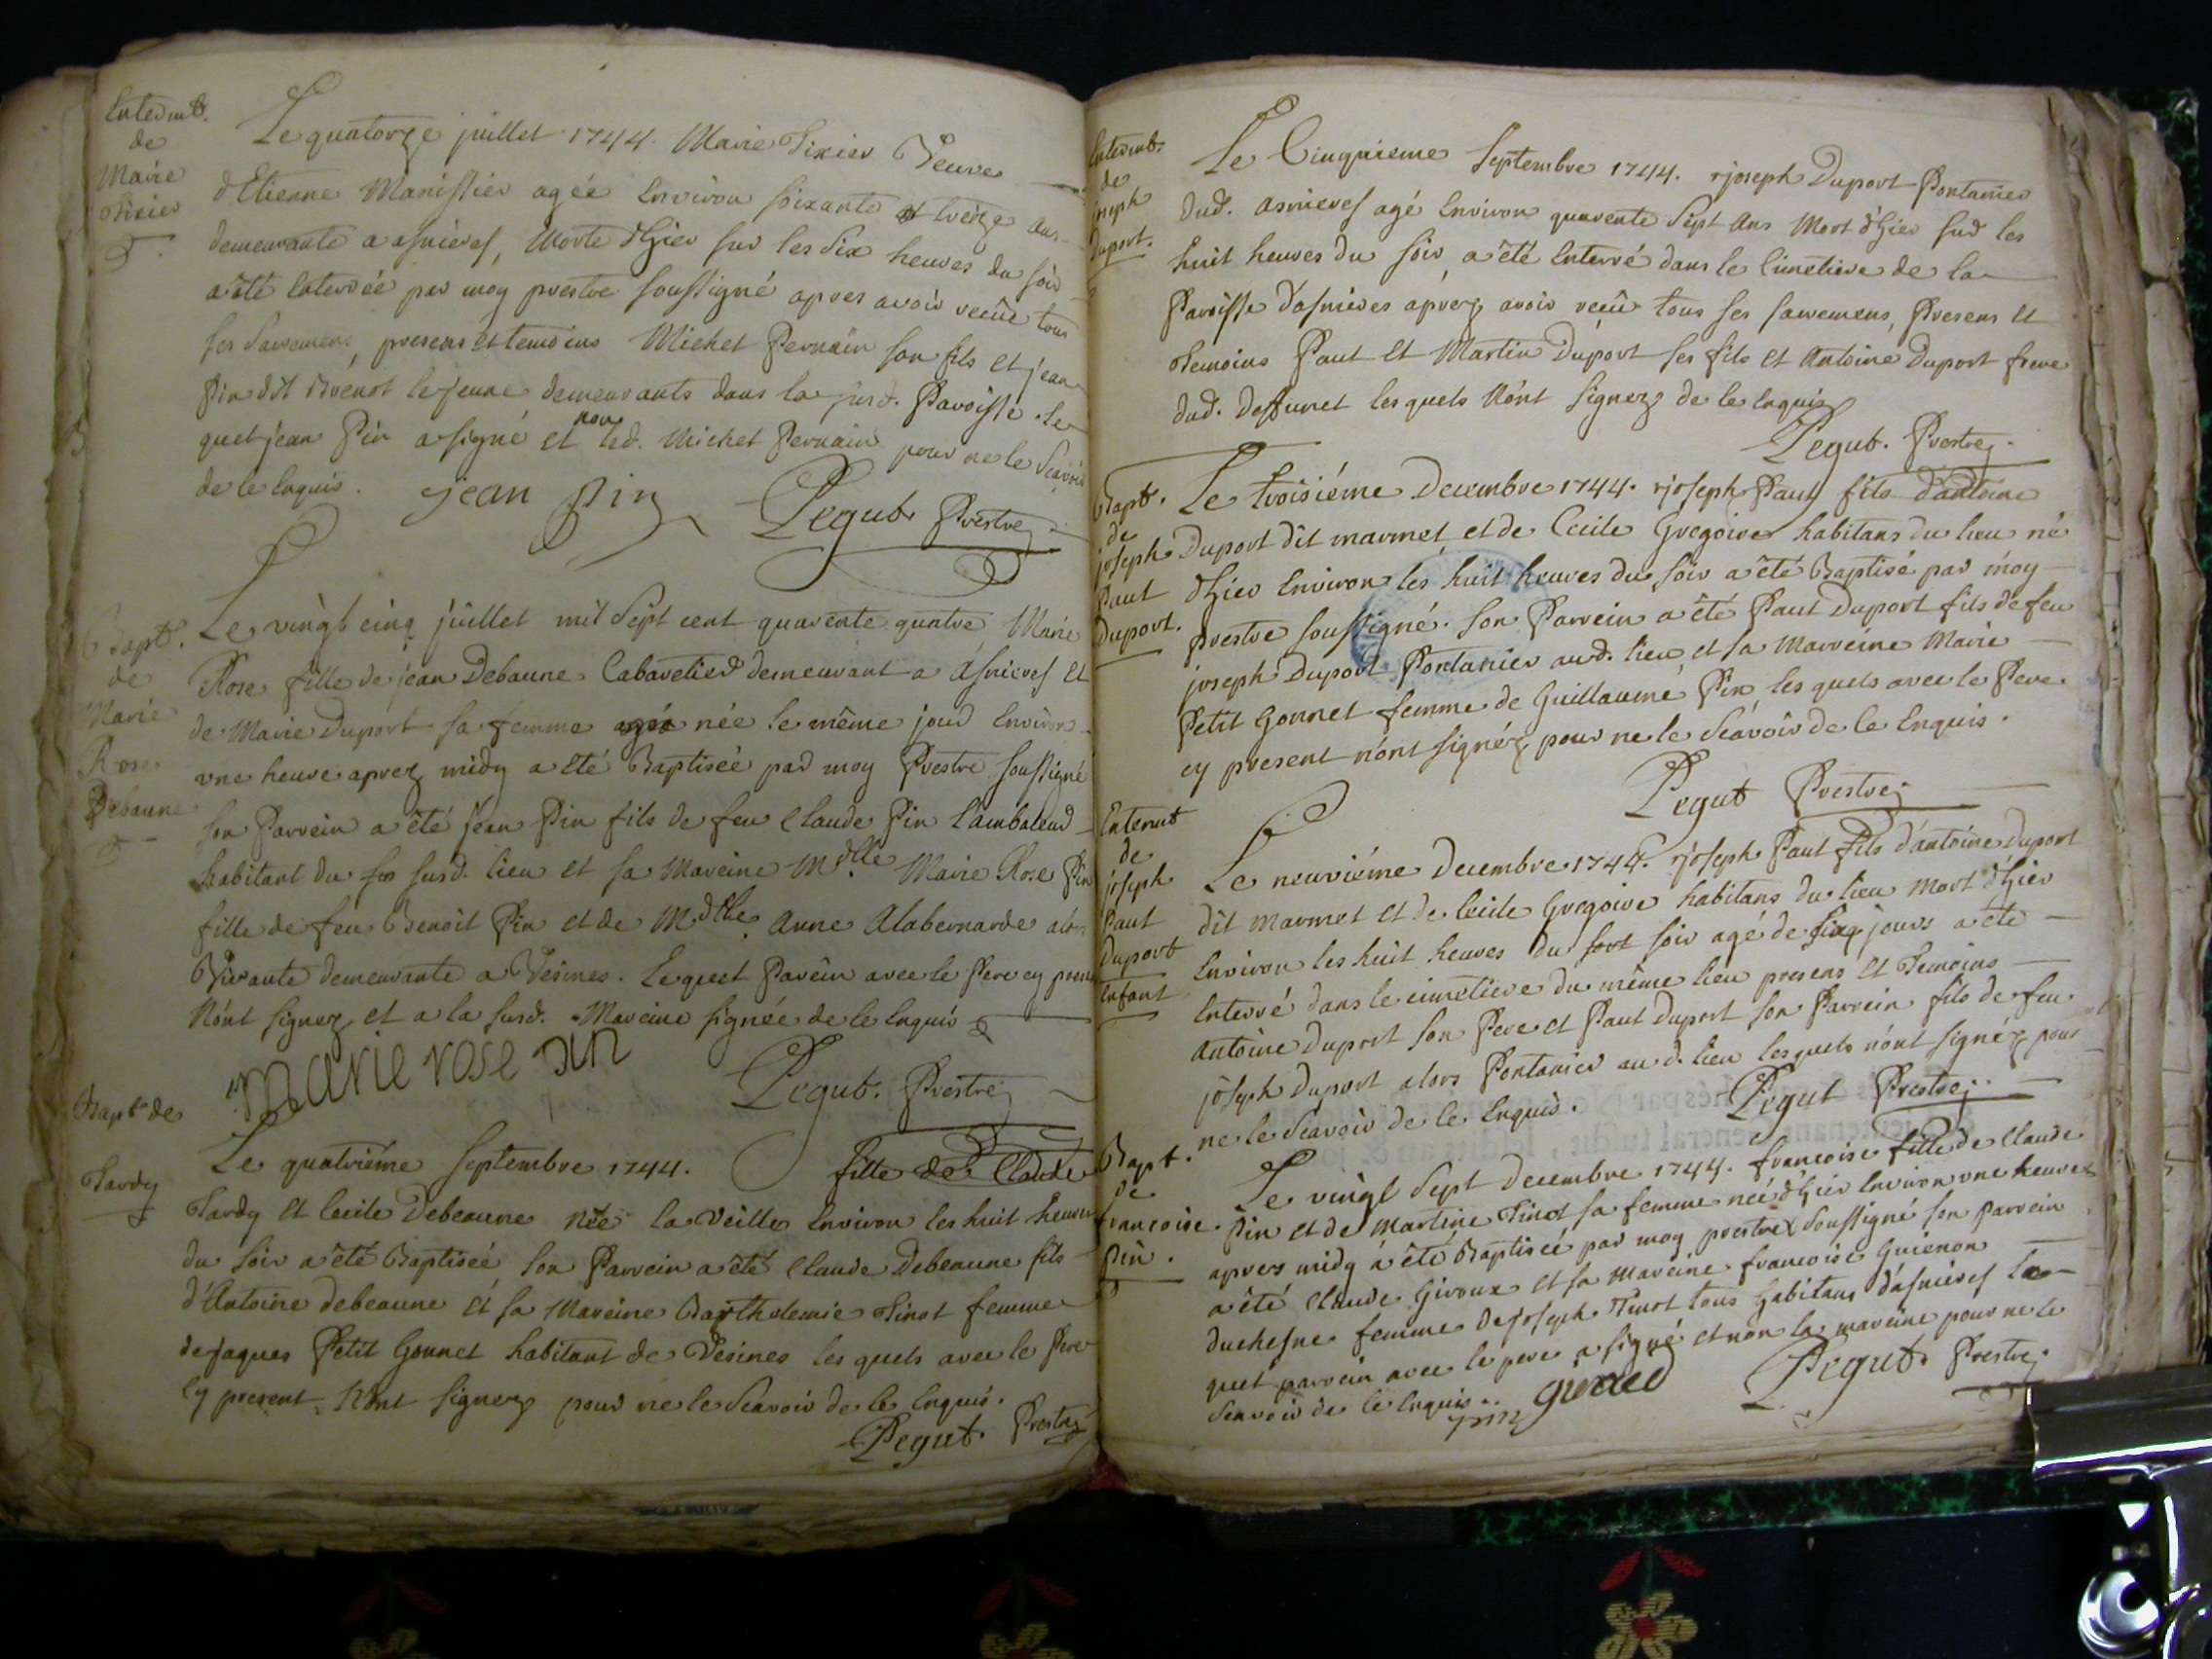 Enterrmt.
de
Marie
Tixier
Le quatorze juillet 1744. Marie Tixier Veuve
d'Etienne Manissier agée Environ soixante et treize ans
demeurante a asnieres, Morte d'hier sur les six heures du soir
a été Enterrée par moy prestre soussigné apres avoir recûe tous
ses Sacremens, presens et temoins Michel Pernain son fils et jean
Pin dit Benot le jeune demeurants dans la susd. Paroisse. le
quel jean Pin a signé et non led. Michel Pernain pour ne le Scavoir
de le Enquis.
jean pin
Pegut. Prestre
Bapt.
de
Marie
Rose
Debaune
Le vingt cinq juillet mil Sept cent quarente quatre Marie
Rose fille de jean Debaune Cabaretier demeurant a Asnieres Et
de Marie Duport sa femme née le même jour Environ
une heure aprez midy a été Baptisée par moy Prestre soussigné
son Parrein a été jean Pin fils de feu Claude Pin
habitant du susd. lieu et sa Mareine Mdlle. Marie Rose Pin
fille de feu Benoit Pin et de Mdlle. Anne Alabernarde alors
Vivante demeurante a Vésines. Lequel Parein avec le Pere cy present
N'ont signez et a la susd. Mareine signée de le Enquis
marie rose pin
Pegut. Prestre
Bapt. de
Tardy
Le quatriéme Septembre 1744. fille de Claude
Tardy et Cecile Debeaune née la Veille Environ les huit heures
du soir a été Baptisée son Parrein a été Claude Debeaune fils
d'Antoine debeaune et sa Mareine Bartholemie Tinot femme
de jaques Petit Gonnet habitant de Vésines les quels avec le Pere
Cy present N'ont signez pour ne le Scavoir de le Enquis.
Pegut. Prestre
Enterrmt.
de
joseph
Duport.
Le Cinquieme Septembre 1744. joseph Duport Pontanier
dud. asnieres agé Environ quarente Sept ans Mort d'hier sur les
huit heures du soir, a été Enterré dans le Cimetiere de la
Paroisse d'asnieres aprez avoir recû tous ses sacremens, Presens et
Temoins Paul et Martin Duport ses fils et Antoine Duport frere
dud. Deffunct les quels N'ont Signez de le Enquis
Pegut. Prestre.
Bapt.
de
joseph
Paul
Duport.
Le troisiéme Decembre 1744. joseph Paul fils d'antoine
Duport dit marmet et de Cecile Gregoire habitans du lieu né
d'hier Environ les huit heures du soir a été Baptisé par moy
prestre soussigné. son Parrein a été Paul Duport fils de feu
joseph Duport Pontanier aud. lieu et sa Marreine Marie
Petit Gonnet femme de Guillaume Pin les quels avec le Pere
cy present n'ont signéz pour ne le Scavoir de le Enquis.
Pegut Prestre
Enterrmt
de
joseph
Paul
Duport
Enfant
Le neuviéme Decembre 1744. joseph Paul fils d'antoine Duport
dit Marmet et de Cecile Gregoire habitans du lieu mort d'hier
Environ les huit heures du soir agé de jours a été
Enterré dans le cimetiere du même lieu presens et Temoins
Antoine Duport son Pere et Paul Duport son Parrein fils de feu
joseph Duport alors Pontanier aud. lieu lesquels n'ont signéz pour
ne le Scavoir de le Enquis.
Pegut Prestre
Bapt.
de
francoise
Pin.
Le vingt Sept Decembre 1744. francoise fille de Claude
Pin et de Martine Tinot sa femme née d'hier Environ une heure
apres midy a été Baptisée par moy prestre Soussigné son parrein
a été Claude Giroux et sa Mareine francoise Guienon
duchesne femme de joseph Tinot tous habitans d'asnieres le
quel parrein avec le pere a signé et non la mareine pour ne le
Scavoir de le Enquis.
pin
Pegut. Prestre